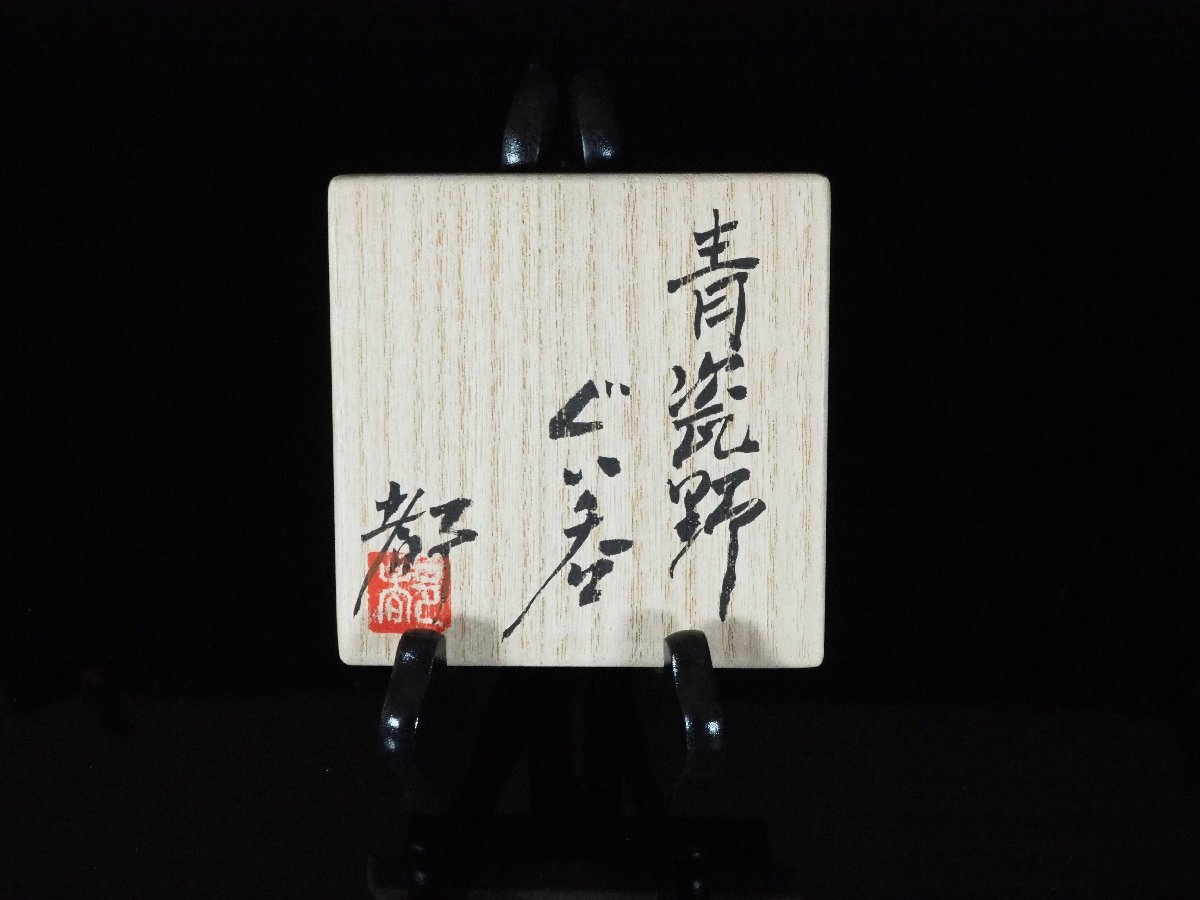 青瓷野
ぐい呑